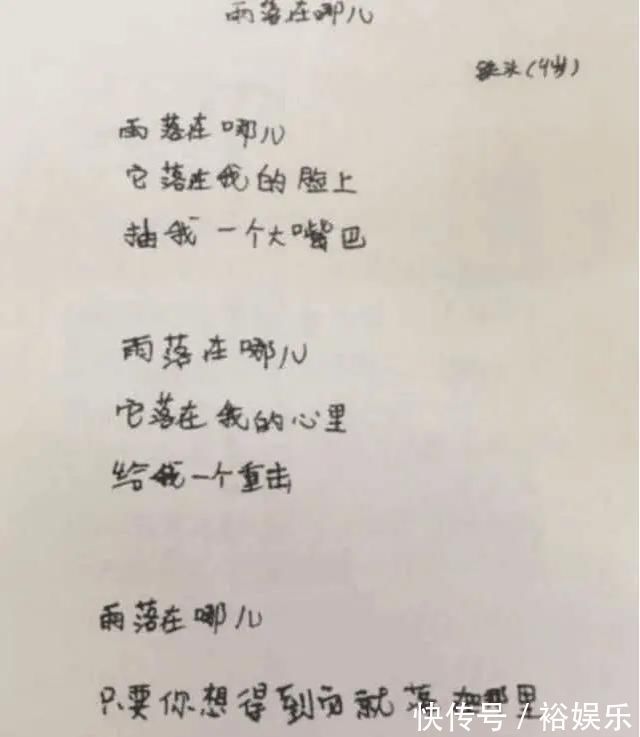 雨落在哪儿
铁头(4岁)
雨落在哪儿
它落在我的脸上
抽我一个大嘴巴
雨落在哪儿
它落在我的心里
给我一个重击
雨落在哪儿
只要你想得到雨就落在那里
快传号/裕娱乐